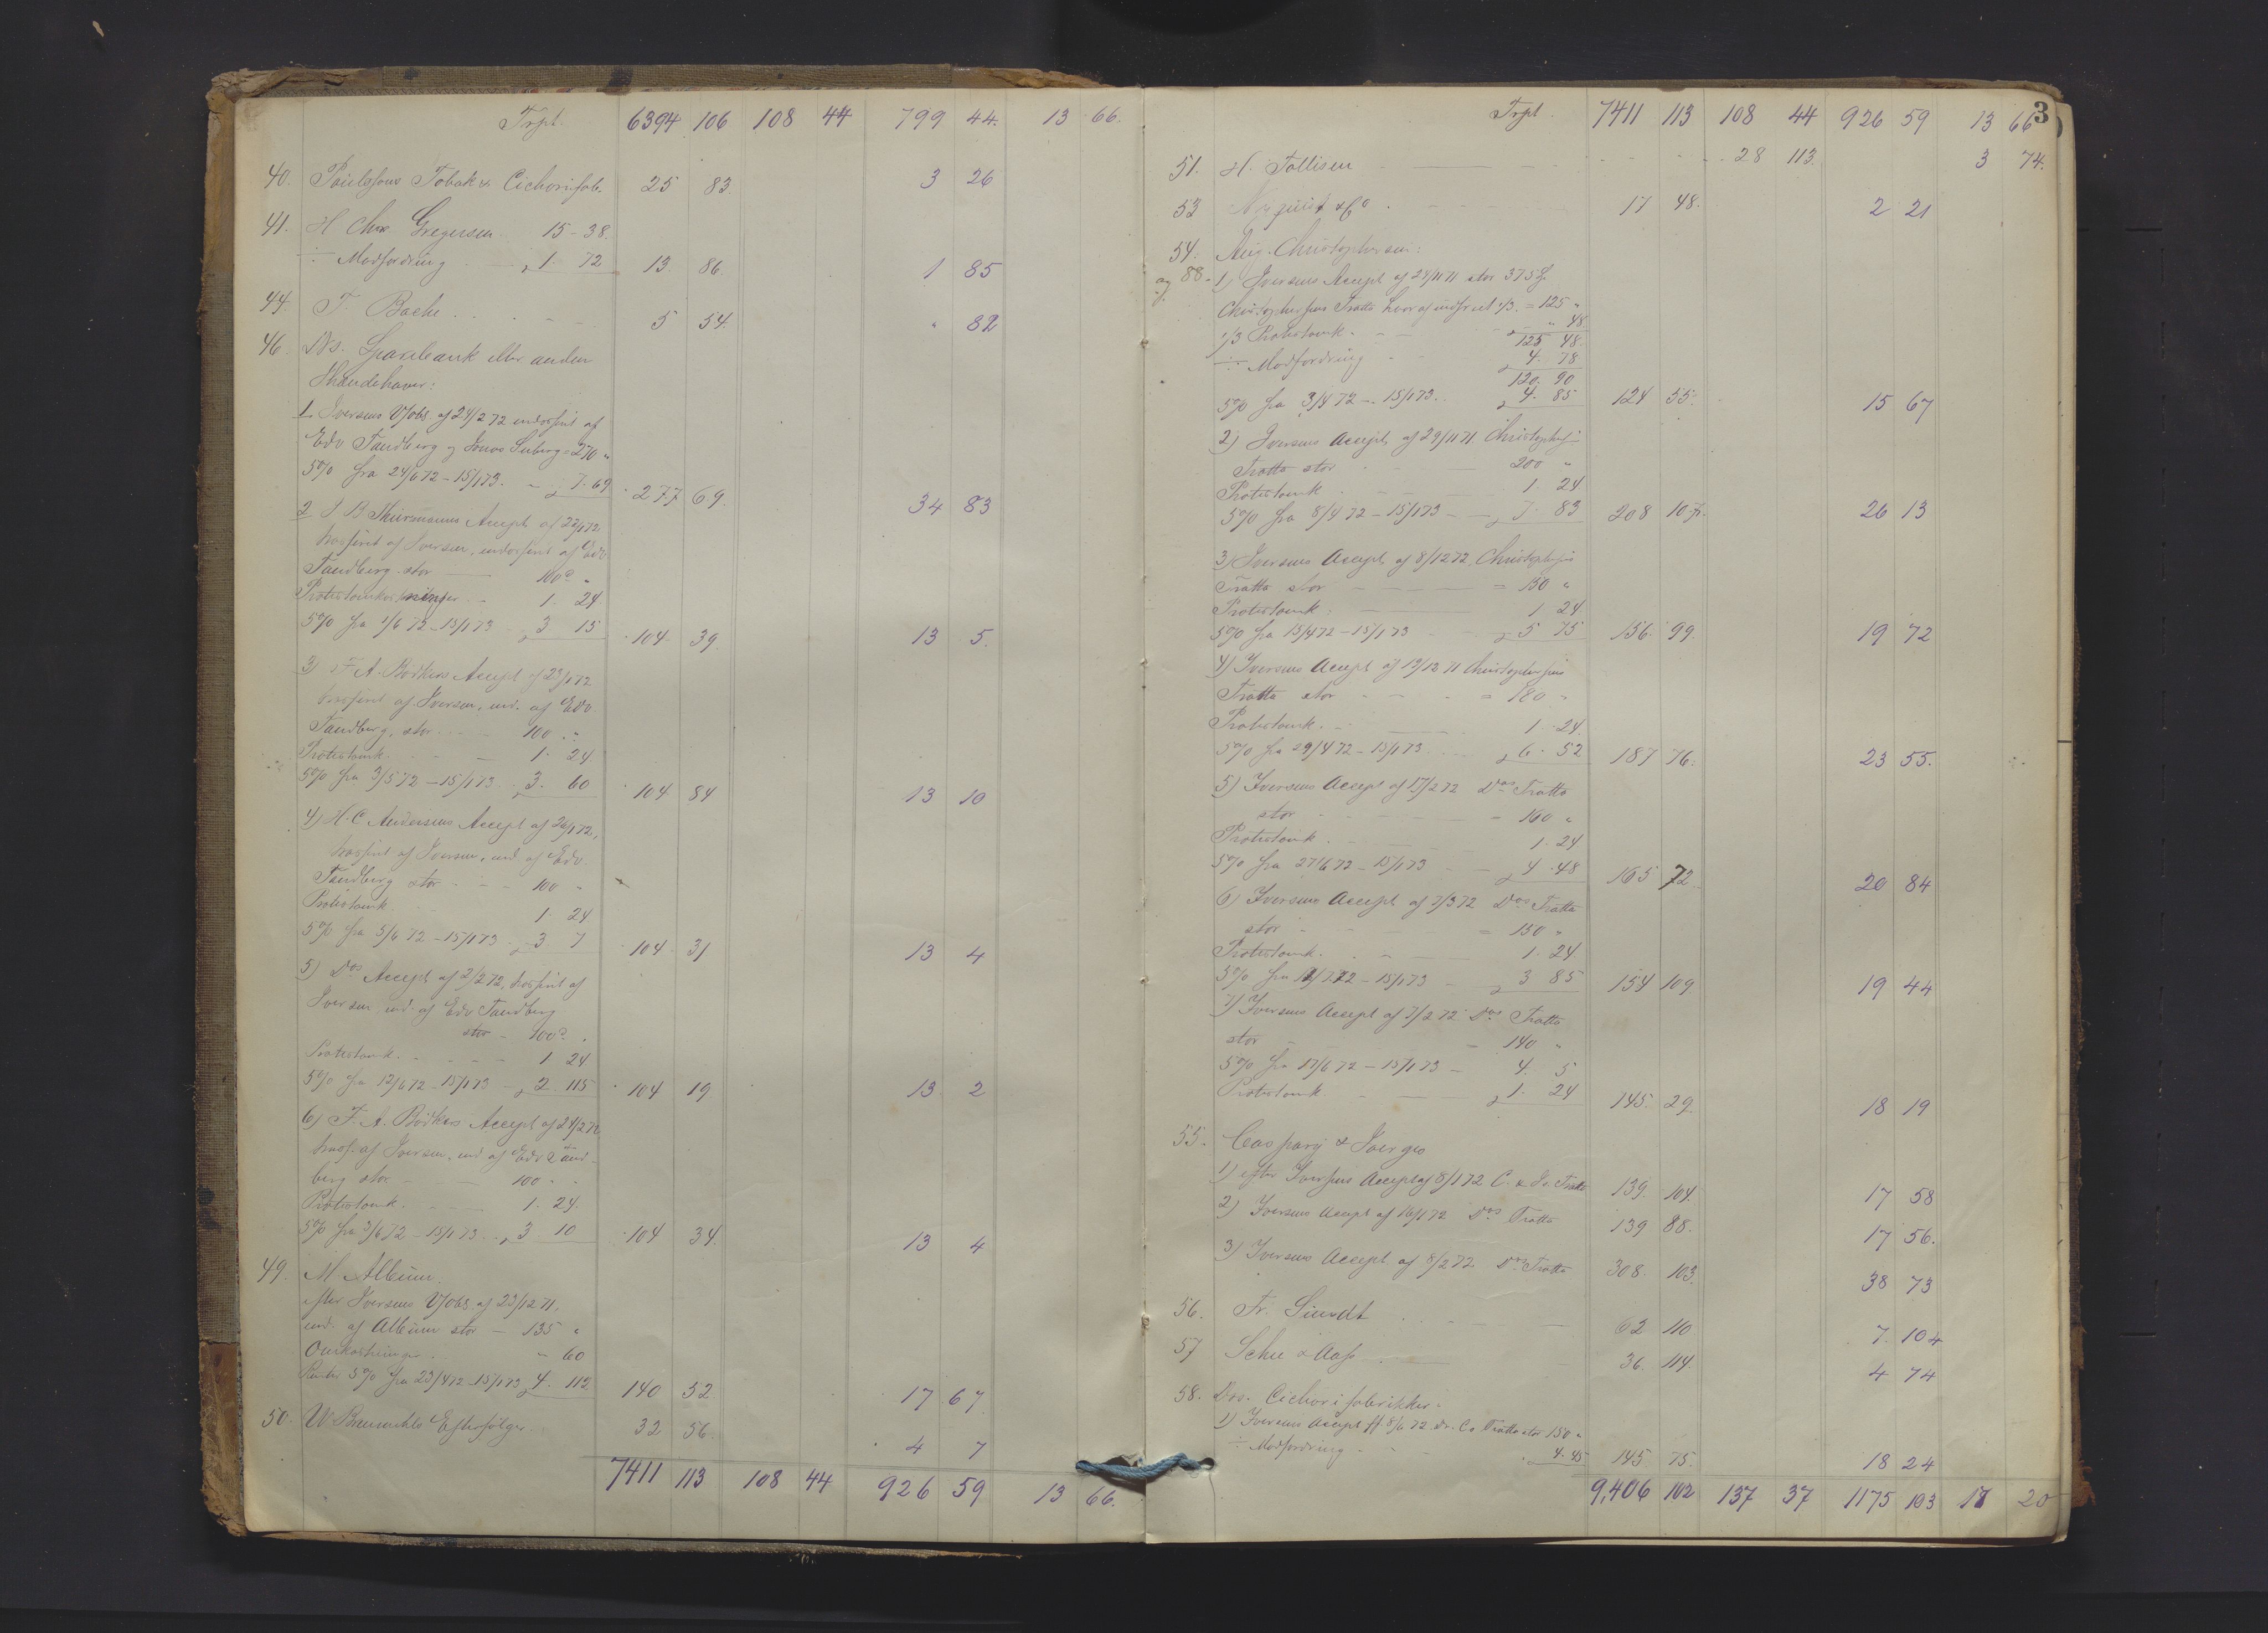 Trpt. 6394 106 108 44 799 44. 13 66.
40. Paulsens Tobak & Cichorifab. 25 83. 3 26
41. H Chr. Gregersen 15-38.
÷ Modfordring 1. 72 13. 86. 1 85
44. F. Bache 5 54. " 82
46. Ds. Sparebank eller anden
Ihændehaver:
1. Iversens V/obl. af 24/2 72 endosseret af
Edv Tandberg og = 270 "
5% fra 24/6 72 - 15/1 73. - 7. 69 277 69. 34 83
2 Accept af 22/1 72
trasseret af Iversen, endosseret af Edv
Tandberg stor 100 "
Protestomkostninger 1. 24.
5% fra 1/6 72 - 15/1 73 3 15 104. 39. 13 5.
3) F. A. Bödkers Accept af 23/1 72
trasseret af Iversen, end. af Edv.
Tandberg, stor 100 "
Protestomk. 1. 24
5% fra 3/5 72 - 15/1 73 3. 60 104 84 13 10
4) H. C. Andersens Accept af 26/1 72,
trasseret af Iversen, end af Edv.
Tandberg stor 100 "
Protestomk. 1. 24
5% fra 5/6 72 - 15/1 73 3. 7 104. 31 13 4
5) Dos Accept af 2/2 72, trasseret af
Iversen, end. af Edv Tandberg
stor - 100 "
Protestomk. 1. 24
5% fra 12/6 72 - 15/1 73 - 2. 115 104 19 13. 2
6) F. A. Bödkers Accept af 24/2 72
trass. af Iversen, end af Edv Tand-
berg stor 100 "
Protestomk. 1. 24.
5% fra 3/6 72 - 15/1 73 3 10 104 34. 13 4
49. M. Album.
efter Iversens V/obl. af 23/12 71,
end. af Album stor - 135 "
Omkostninger " 60
Renter 5% fra 23/4 72 - 15/1 73 4. 112. 140 52. 17 67.
50. W Efterfølger 32 56. 4 7
7411 113 108 44 926 59 13 66.
3
Trpt. 7411 113 108 44 926 59 13 66
51. H. Tollisen 28 113. 3 74.
53 & Co. 17 48. 2 21
54. Aug. Christophersen:
og 88. 1) Iversens Accept af 24/11 71 stor 375
Christophersens Tratta hvoraf indfriet 2/3. = 125 "
1/3 Protestomk. " 48
125 48.
÷ Modfordring 4. 78
120. 90
5% fra 3/4 72 - 15/1 73. 4. 85 124 55. 15 67
2) Iversens Accept af 29/11 71. Christophersens
Tratta stor 200 "
Protestomk 1. 24
5% fra 8/4 72 - 15/1 73 7. 83 208 107. 26 13
3) Iversens Accept af 8/12 72, Christophersens
Tratta stor = 150 "
Protestomk. 1. 24
5% fra 15/4 72 - 15/1 73 5 75 156. 99. 19 72
4) Iversens Accept af 19/12 71 Christophersens
Tratta stor = 180 "
Protestomk. 1. 24.
5% fra 29/4 72 - 15/1 73 6. 52 187 76. 23 55.
5) Iversens Accept af 17/2 72 Dos Tratta
stor = 160 "
Protestomk. 1. 24
5% fra 27/6 72 - 15/1 73 4. 48 165 72. 20 84
6) Iversens Accept af 7/3 72 Dos Tratta
stor = 150 "
Protestomk. 1. 24
5% fra 12/7 72 - 15/1 73 3 85 154 109. 19 44
7) Iversens Accept af 7/2 72 Dos Tratta
stor = 140 "
5% fra 17/6 72 - 15/1 73 4. 5
Protestomk 1. 24 145. 29. 18 19
55. Caspary & Joerges
1) efter Iversens Accept af 8/1 72 C. & Js. Tratta 139 104. 17 58
2) Iversens Accept af 16/1 72 Dos Tratta 139 88. 17 56.
3) Iversens Accept af 8/2 72 Dos Tratta 308. 103. 38 73
56. Fr. Sundt 62 110 7. 104
57 Schu & Aass 36. 114. 4 74
58. Dr. Cichorifabrikker.
1) Iversens Accept af 8/6 72. Dr. Cs Tratta stor 150 "
÷ Modfordring 4. 45 145 75. 18 24
9,406 102 137 37 1175 103 17 20